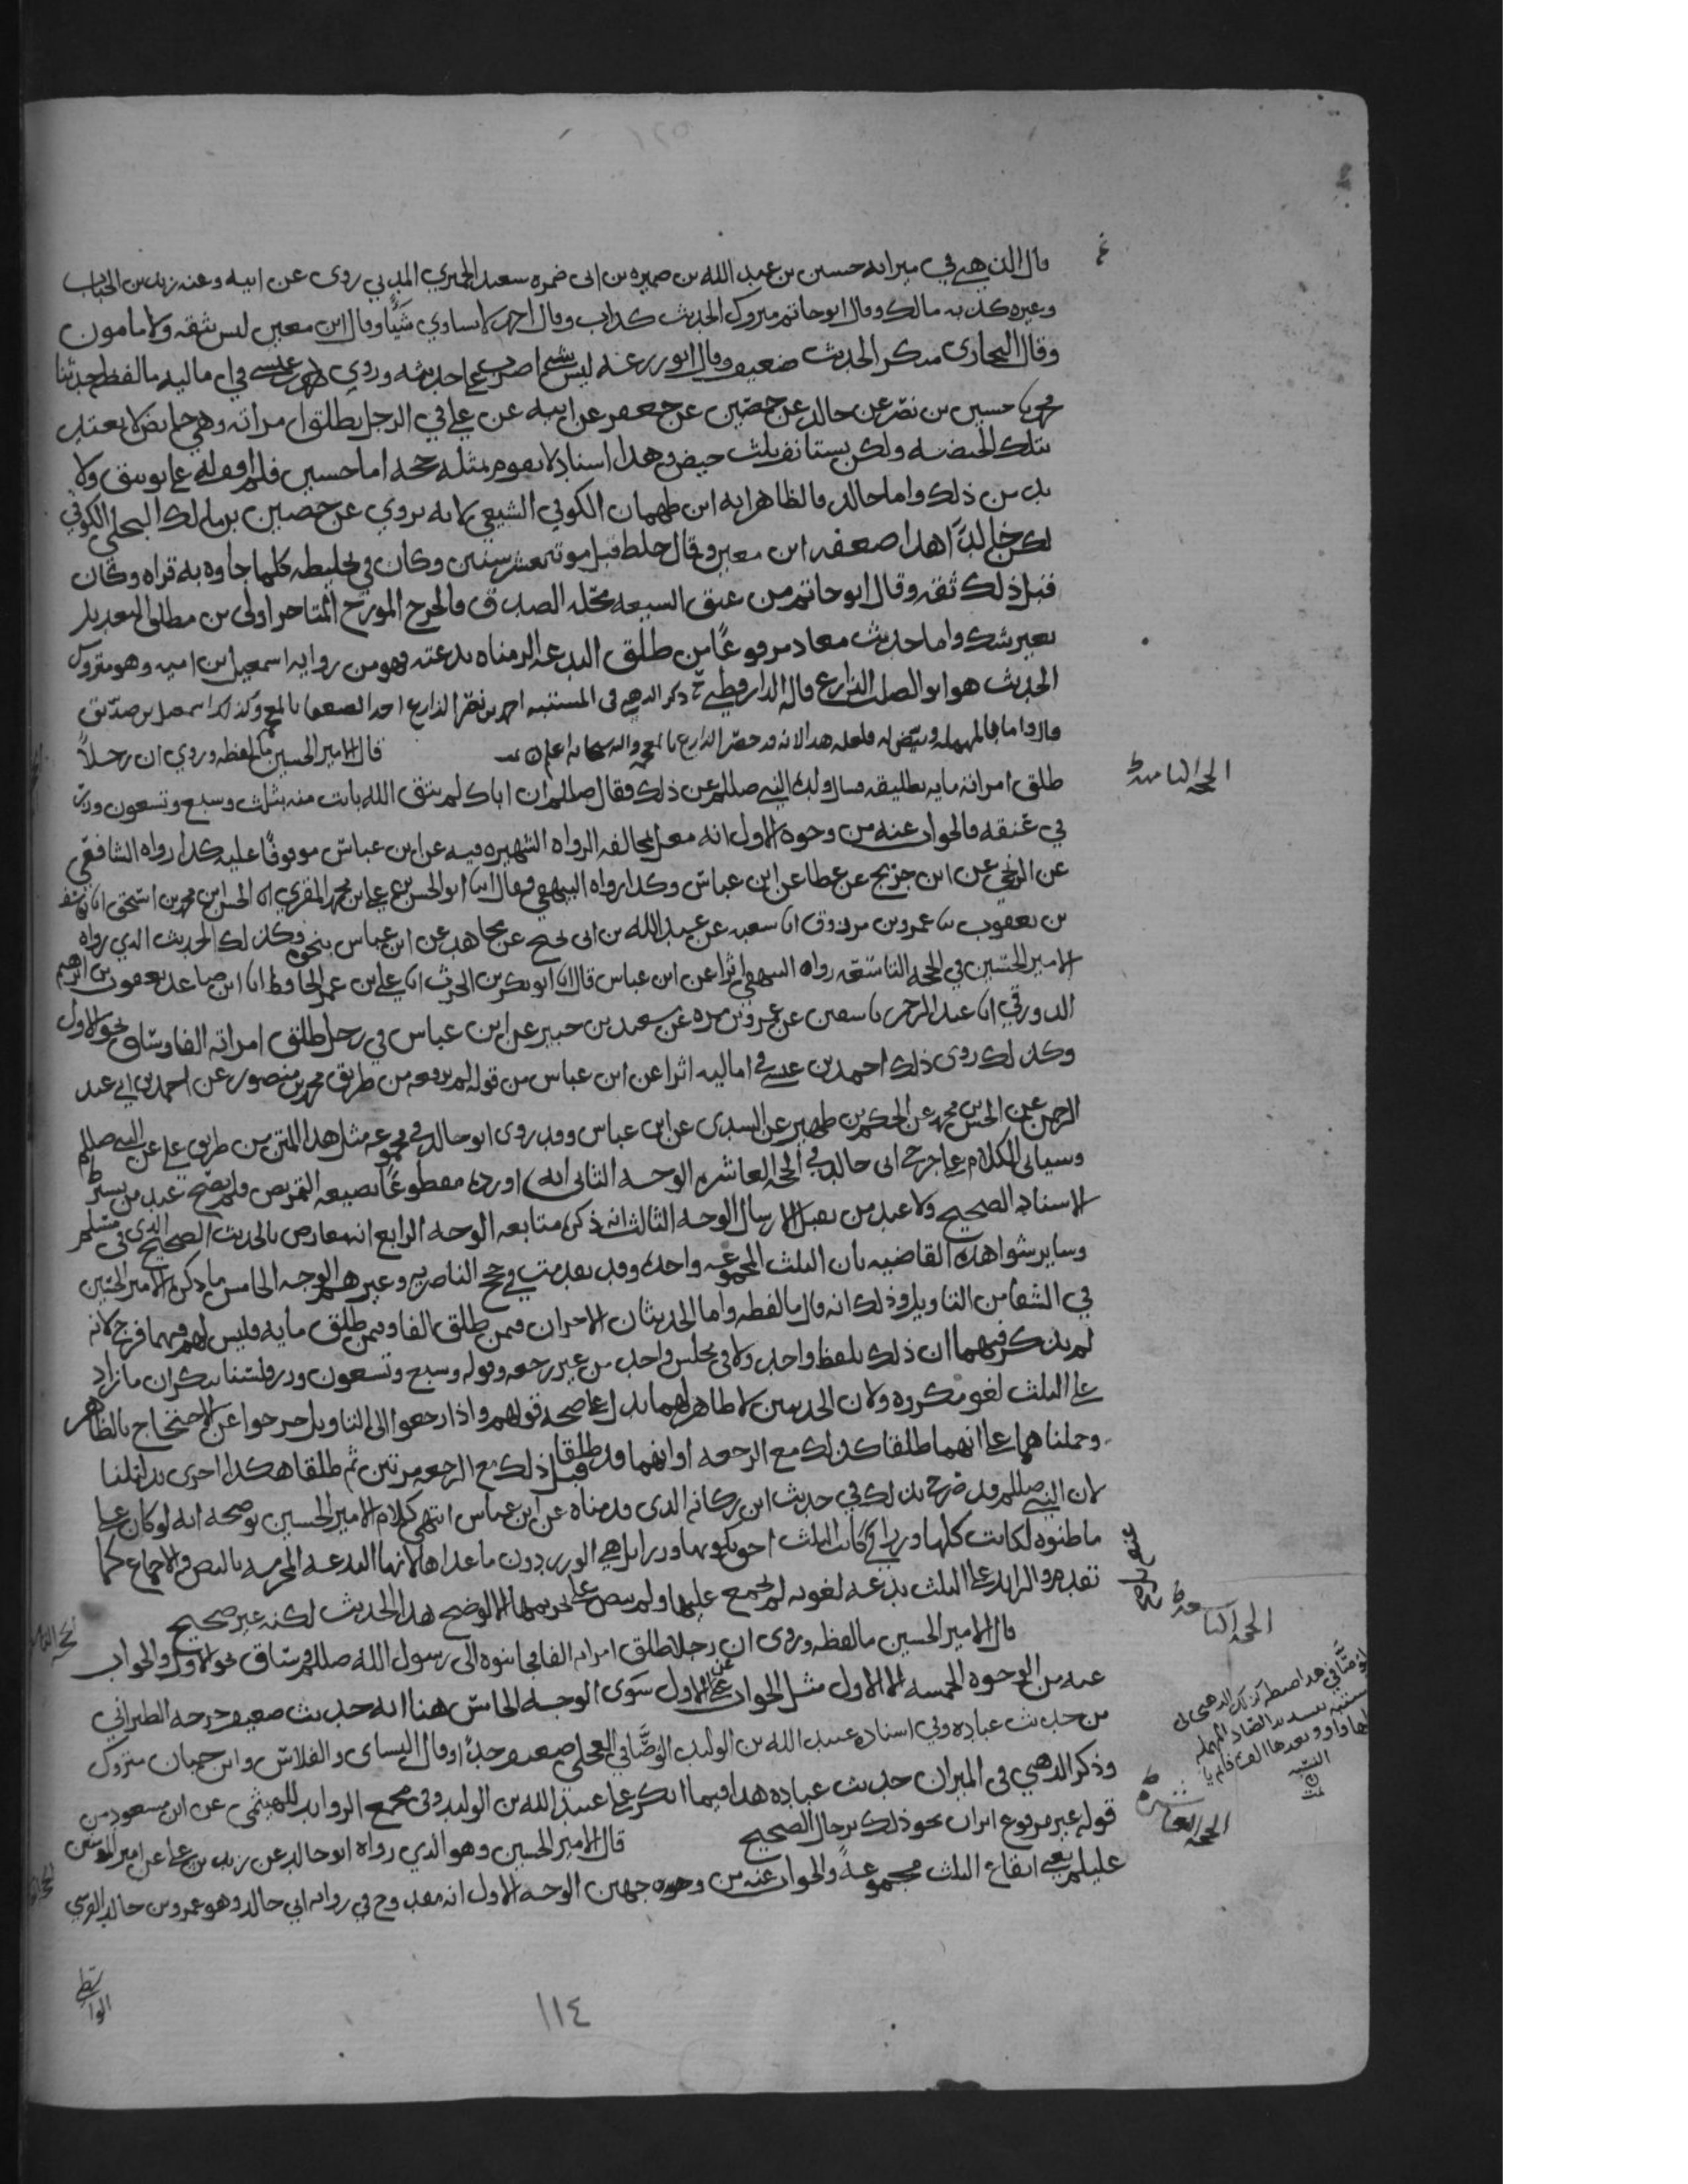 قال الذهبي في ميزانه حسين بن عبد الله بن ضميره بن ابي ضمره سعيد الحميري المدني روى عن ابيه وعنه زيد بن الحباب
وغيره كذبه مالك وقال ابو حاتم متروك الحديث كذاب وقال احمد لا يساوي شيأ وقال ابن معين ليس بثقه ولا مامون
وقال البخارى منكر الحديث ضعيف وقال ابو زرعه ليس بشي اضرب على حديثه وروى احمد بن عيسى في اماليه ما لفظه حدثنا
محمد نا حسين بن نصر عن خالد عن حصين عن جعفر عن ابيه عن علي في الرجل يطلق امراته وهي حايض لا تعتد
بتلك الحيضه ولكن تستانف بثلث حيض وهذا اسناد لا يقوم بمثله حجه اما حسين فلم اقف له على توثيق ولا
بد من ذلك واما خالد فالظاهر انه ابن طهمان الكوفي الشيعي لانه يروي عن حصين بن مالك البجلي الكوفي
لكن خالداً هذا ضعفه ابن معين وقال خلط قبل موته بعشر سنين وكان في تخليطه كلما جاوه به قراه وكان
قبل ذلك ثقه وقال ابو حاتم من عتق الشيعه محله الصدق فالجرح المورخ المتاخر اولى من مطلق التعديل
بغير شك واما حديث معاد مرفوعًا من طلق البدعه الزمناه بدعته فهو من روايه اسمعيل بن اميه وهو متروك
الحديث هو ابو الصلت الذارع قاله الدارقطني ذكر الذهبي في المشتبه احمد بن نصر الذارع احد الضعفا بالمعجمه وكذلك اسمعيل بن صديق
قال واما بالمهمله وبيض له فلعله هذا لانه قد حصر الذارع بالمعجمه والله سبحانه اعلم قال الامير الحسين ما لفظه وروي ان رجلاً
طلق امراته مايه تطليقه فسال ولده النبي صللم عن ذلك فقال صللم ان اباك لم يتق الله بانت منه بثلث وسبع وتسعون وزر
في عنقه فالجواب عنه من وجوه الاول انه معل بمخالفه الرواه الشهيره فيه عن ابن عباس موقوفًا عليه كذا رواه الشافعي
عن الزنجي عن ابن جريج عن عطا عن ابن عباس وكذا رواه البيهقي فقال انا ابو الحسن علي بن محمد المقري انا الحسن بن محمد بن اسحق انا يوسف
بن يعقوب نا عمرو بن مرزوق انا شعبه عن عبد الله بن ابى نجيح عن مجاهد عن ابن عباس بنحوه وكذلك الحديث الذي رواه
الامير الحسين في الحجه التاسعه رواه البيهقي اثرًا عن ابن عباس قال انا ابو بكر بن الحرث انا علي بن عمر الحافظ انا ابن صاعد نا يعقوب بن ابرهيم
الدورقي انا عبد الرحمن نا سفين عن عمرو بن مره عن سعيد بن جبير عن ابن عباس في رجل طلق امراته الفا وساق نحو الاول
وكذلك روى ذلك احمد بن عيسى في اماليه اثرا عن ابن عباس من قوله لم يرفعه من طريق محمد بن منصور عن احمد بن ابي عبد
الرحمن عن الحسن بن محمد عن الحكم بن ظهير عن السدى عن ابن عباس وقد روى ابو خالد في مجموعه مثل هذا المتن من طريق علي عن النبي صللم
وسياتي الكلام على جرح ابى خالد في الحجه العاشره الوجه الثاني انه اورده مقطوعًا بصيغه التمريض ولم يصح عند من يشترط
الاسناد الصحيح ولا عند من يقبل الارسال الوجه الثالث انه ذكره متابعه الوجه الرابع انه معارض بالحديث الصحيح الذي في مسلم
وساير شواهده القاضيه بان الثلث المجموعه واحده وقد تقدمت في حجج الناصريه وغيرهم الوجه الخامس ما ذكره الامير الحسين
في الشفا من التاويل وذلك انه قال ما لفظه واما الحديثان الاخران فيمن طلق الفا وفيمن طلق مايه فليس لهم فيهما فرج لانه
لم يذكر فيهما ان ذلك بلفظ واحد ولا في مجلس واحد من غير رجعه وقوله وسبع وتسعون وزر فلسنا ننكر ان ما زاد
على الثلث لغو مكروه ولان الحديثين لا ظاهر لهما يدل على صحه قولهم واذا رجعوا الى التاويل خرجوا عن الاحتجاج بالظاهر
وحملناهما على انهما طلقا كذلك مع الرجعه او انهما قد طلقا قبل ذلك مع الرجعه مرتين ثم طلقا هكذا اخرى بدليلنا
لان النبي صللم قد صرح بذلك في حديث ابن ركانه الذى قدمناه عن ابن عباس انتهى كلام الامير الحسين توضحه انه لو كان على
ما ظنوه لكانت كلها وزراً كانت الثلث احق بكونها وزراً بل هي الوزر دون ما عداها لانها البدعه المحرمه بالنص والاجماع كما
تقدم والزايد على الثلث بدعه لغويه لم يجمع عليها ولم ينص على تحريمها الا لو صح هذا الحديث لكنه غير صحيح
قال الامير الحسين ما لفظه وروى ان رجلا طلق امراته الفا فجا بنوه الى رسول الله صللم وساق نحو الاول والجواب
عنه من الوجوه الخمسه الا الاول مثل الجواب عن الاول سوى الوجه الخامس هنا انه حديث ضعيف خرجه الطبراني
من حديث عباده وفي اسناده عبيد الله بن الوليد الوصّافي العجلي ضعيف جداً وقال النساى والفلاس وابن حبان متروك
وذكر الذهبي في الميزان حديث عباده هذا فيما انكر على عبيد الله بن الوليد وفي مجمع الزوايد للهيثمى عن ابن مسعود من
قوله غير مرفوع اثران نحو ذلك برجال الصحيح قال الامير الحسين وهو الذي رواه ابو خالد عن زيد بن علي عن امير المومنين
عليلم يعني ايقاع الثلث مجموعةً والجواب عنه من وجوه جهين الوجه الاول انه مقدوح في روايه ابي خالد وهو عمرو بن خالد القرشي
الواسطي
الحجه الثامنه
الحجه التاسعه
الوصّافي هذا ضبطه كذلك الذهبي في
المشتبه بتشديد الصاد المهمله
الحجه العاشره
١١٤